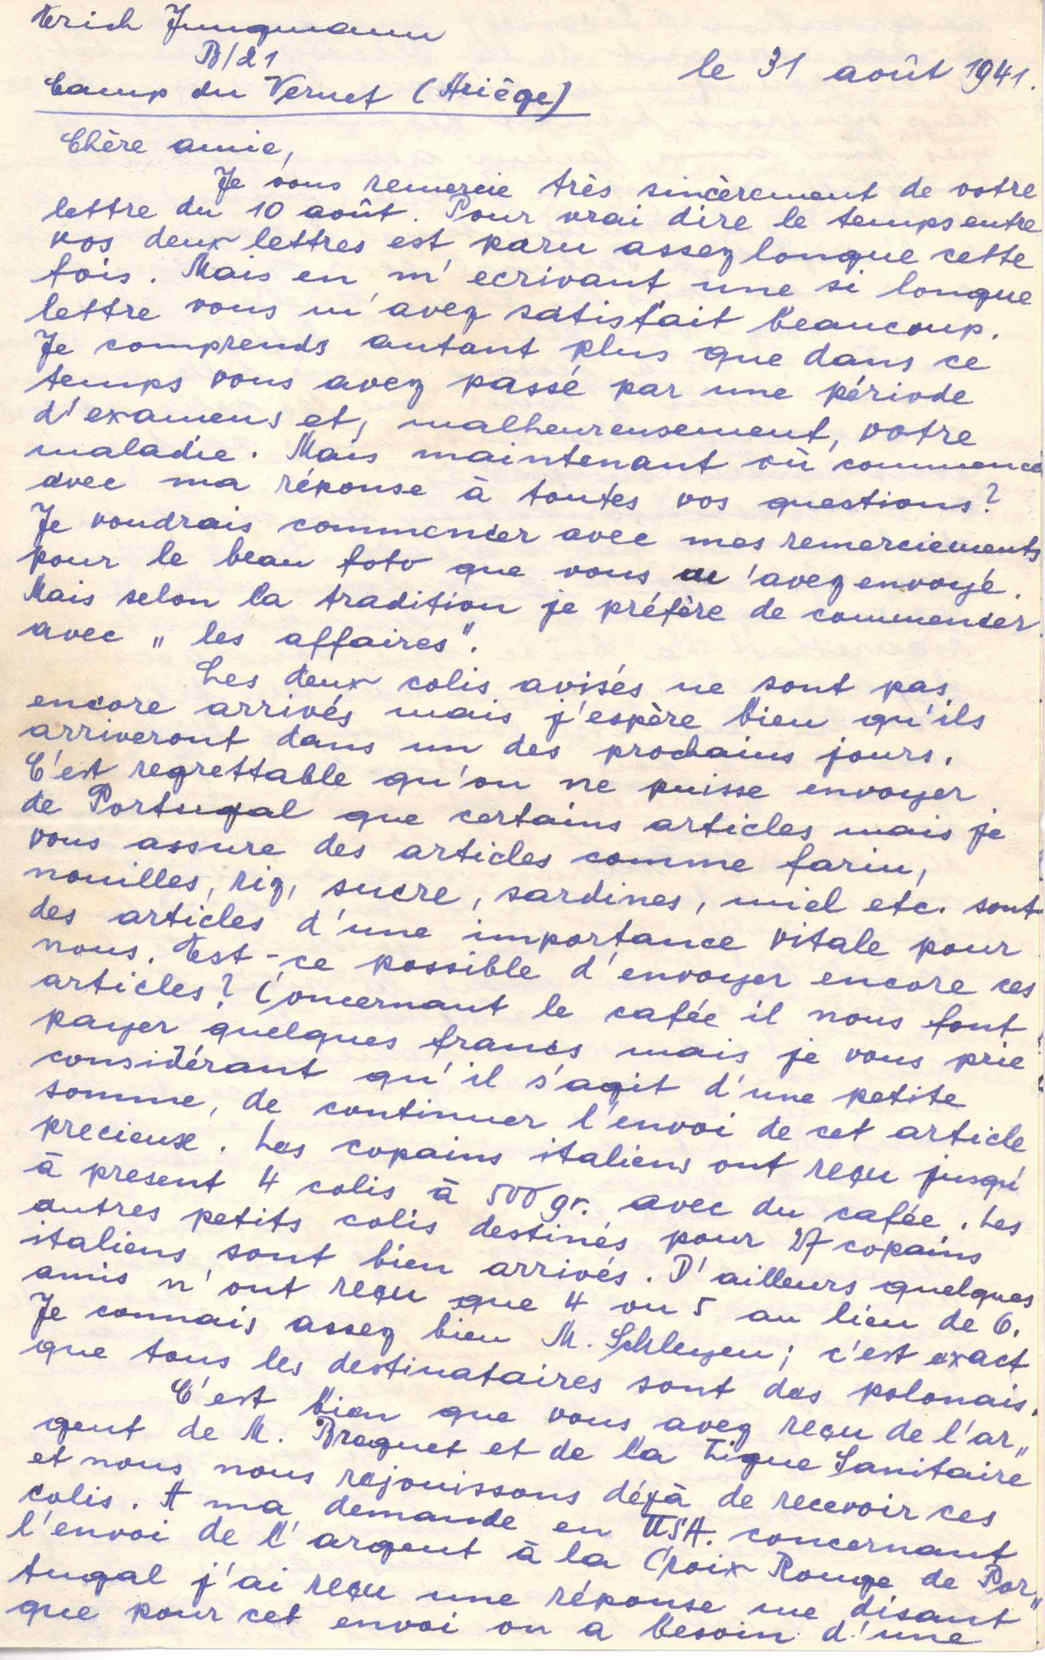 Erich Jungmann
B/21
Camp du Vernet (Ariège)
le 31 août 1941.
Chère amie,
Je vous remercie très sincèrement de votre
lettre du 10 août. Pour vrai dire le temps entre
vos deux lettres est paru assez longue cette
fois. Mais en m'ecrivant une si longue
lettre vous m'avez satisfait beaucoup.
Je comprends autant plus que dans ce
temps vous avez passé par une période
d'examens et, malheureusement, votre
maladie. Mais maintenant où commence
avec ma réponse à toutes vos questions?
Je voudrais commencer avec mes remerciements
pour le beau foto que vous m'avez envoyé.
Mais selon la tradition je préfère de commencer
avec „les affaires".
Les deux colis avisés ne sont pas
encore arrivés mais j'espère bien qu'ils
arriveront dans un des prochains jours.
C'est regrettable qu'on ne puisse envoyer
de Portugal que certains articles mais je
vous assure des articles comme farin,
nouilles, riz, sucre, sardines, miel etc. sont
des articles d'une importance vitale pour
nous. Est-ce possible d'envoyer encore ces
articles? Concernant le cafée il nous font
payer quelques francs mais je vous prie
considérant qu'il s'agit d'une petite
somme, de continuer l'envoi de cet article
precieux. Les copains italiens ont reçu jusqu'
à present 4 colis à 500 gr. avec du cafée. Les
autres petits colis destinés pour 27 copains
italiens sont bien arrivés. D'ailleurs quelques
amis n'ont reçu que 4 ou 5 au lieu de 6.
Je connais assez bien M. Schleyen; c'est exact
que tous les destinataires sont des polonais.
C'est bien que vous avez reçu de l'ar„
gent de M. Braguet et de la Ligue Sanitaire
et nous nous rejouissons déjà de recevoir ces
colis. A ma demande en USA. concernant
l'envoi de l'argent à la Croix Rouge de Por„
tugal j'ai reçu une réponse me disant
que pour cet envoi on a besoin d'une